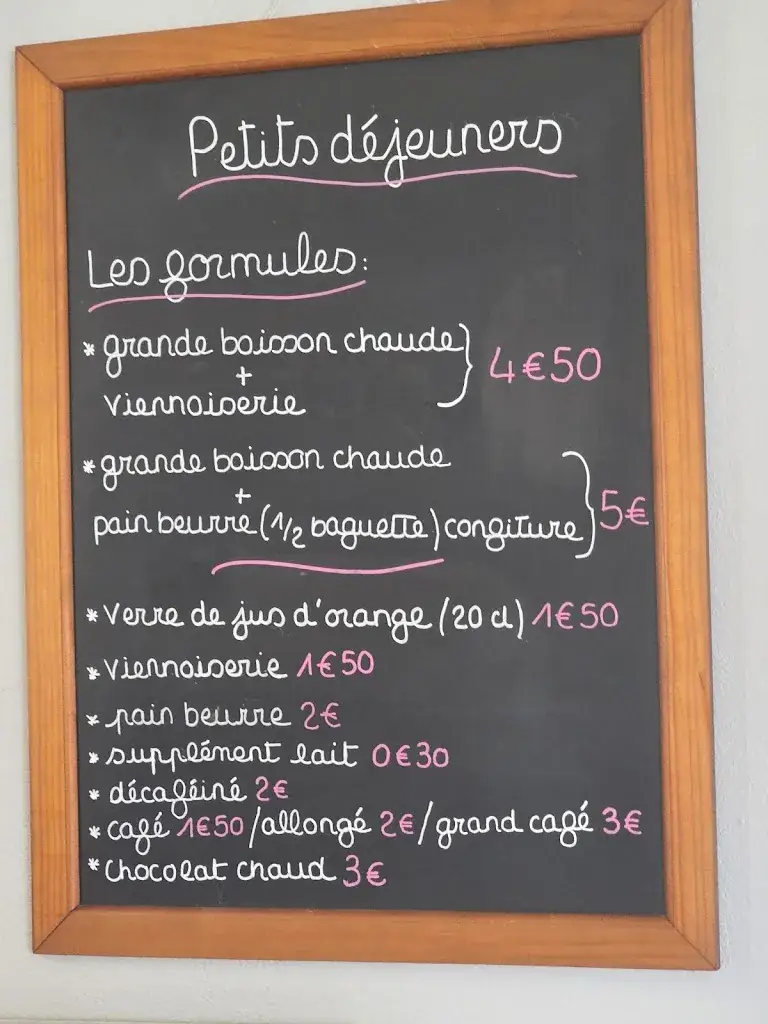 Petits déjeuners
Les formules:
* grande boisson chaude
+
viennoiserie
4€50
* grande boisson chaude
+
pain beurre (1/2 baguette) confiture
5€
* Verre de jus d'orange (20 cl) 1€50
* viennoiserie 1€50
* pain beurre 2€
* supplément lait 0€30
* décaféiné 2€
* café 1€50/allongé 2€/grand café 3€
* Chocolat chaud 3€